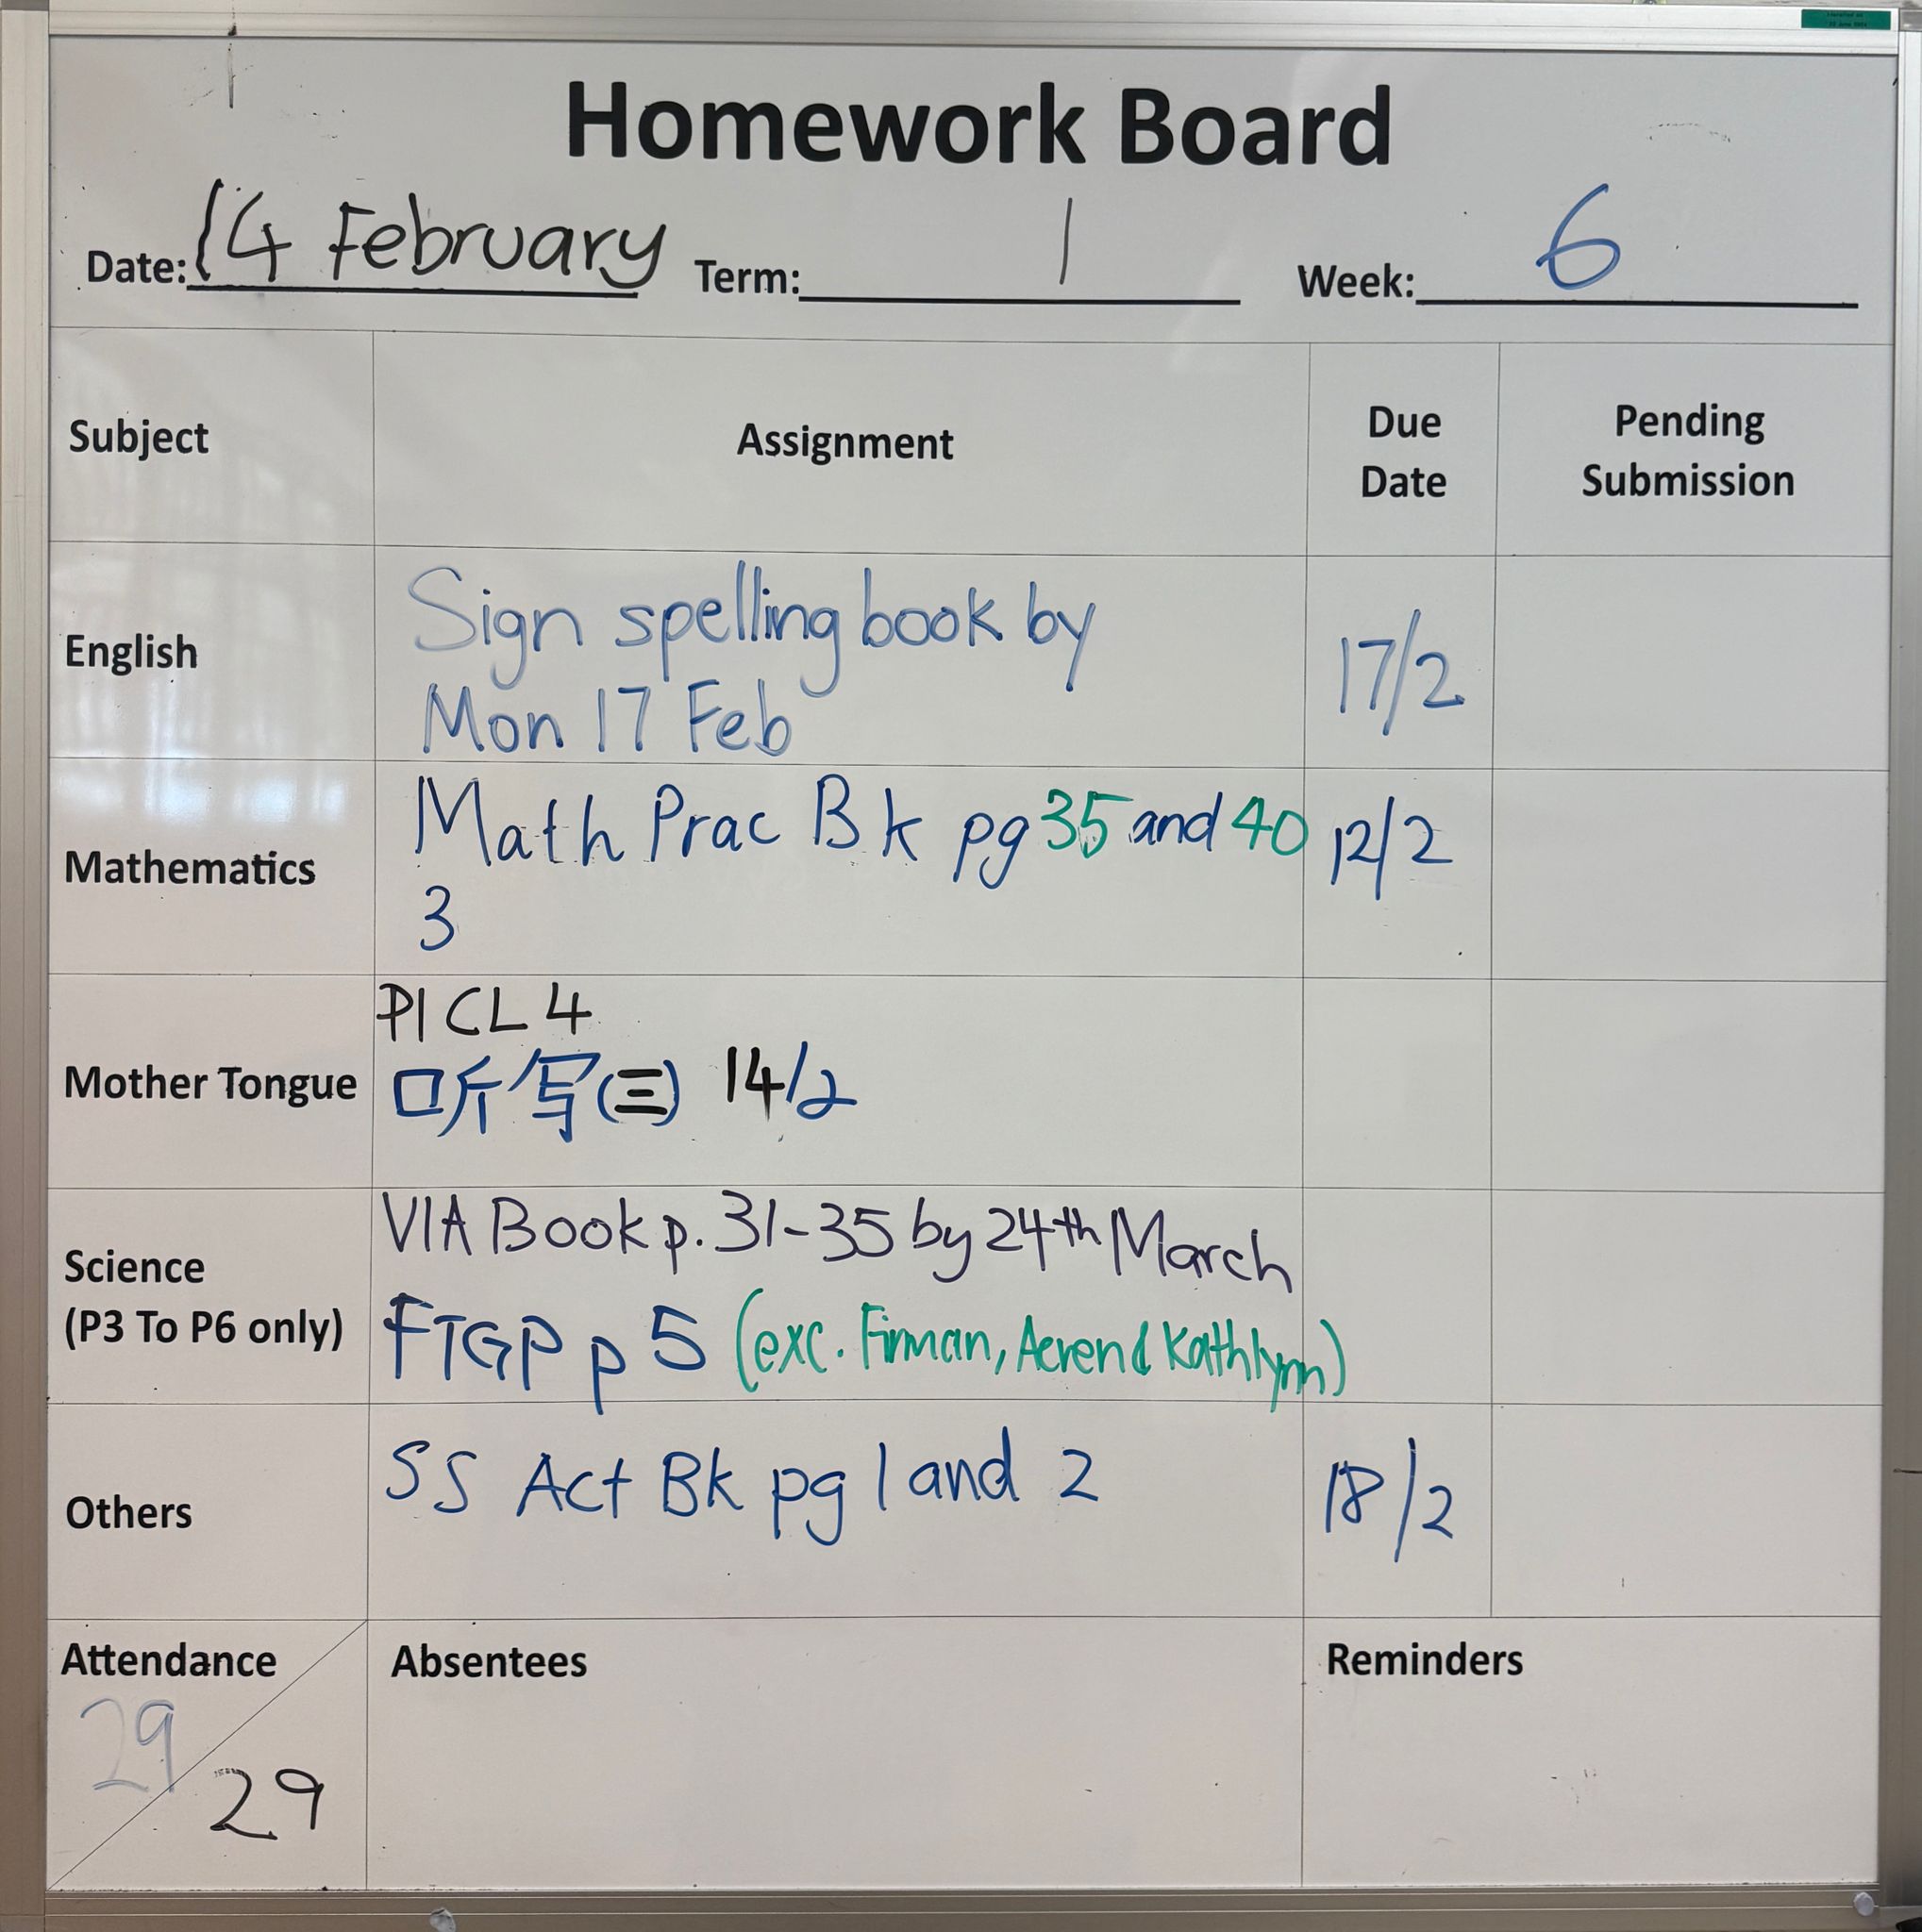 Homework Board
Date: 14 February Term: 1 Week: 6
Subject Assignment Due Date Pending Submission
English Sign spelling book by Mon 17 Feb 17/2
Mathematics Math Prac Bk pg 35 and 40 12/2
3
Mother Tongue PICL 4
听写(三) 14/2
Science (P3 To P6 only) VIA Book p. 31-35 by 24th March
FTGP p 5 (exc. Firman, Aerend Kathlynn)
Others SS Act Bk pg 1 and 2 18/2
Attendance Absentees Reminders
29
29